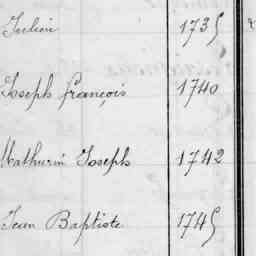 Julien 1735
Joseph françois 1740
Mathurin Joseph 1742
Jean Baptiste 1745